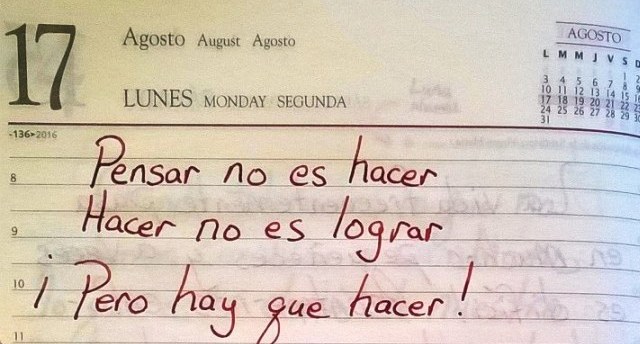 17
Agosto August Agosto
LUNES MONDAY SEGUNDA
AGOSTO
L M M J V S D
1 2
3 4 5 6 7 8 9
10 11 12 13 14 15 16
17 18 19 20 21 22 23
24 25 26 27 28 29 30
31
-136▸2016
Pensar no es hacer
8
Hacer no es lograr
9
¡Pero hay que hacer!
10
11